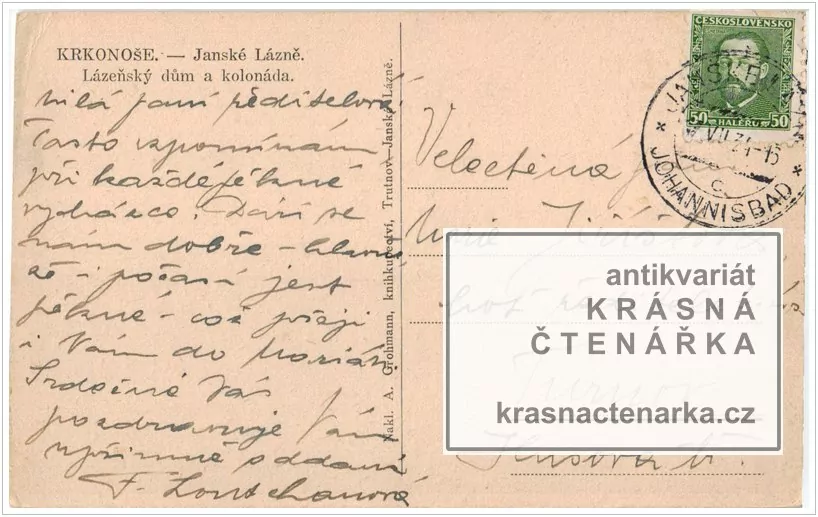 KRKONOŠE. — Janské Lázně.
Lázeňský dům a kolonáda.
Milá paní ředitelová!
Často vzpomínám
při každé pěkné
vycházce. Daří se
nám dobře – hlavně
že – počasí jest
pěkné – což přeji
i Vám do Marián.
Srdečně Vás
pozdravuje Vám
upřímně oddaná
F.
Nakl. A. Grohmann, knihkupectví, Trutnov—Janské Lázně.
ČESKOSLOVENSKO
50 HALÉŘŮ 50
JOHANNISBAD
Velectěná
Marie
choť
Turnov
Husova
antikvariát
KRÁSNÁ
ČTENÁŘKA
krasnactenarka.cz